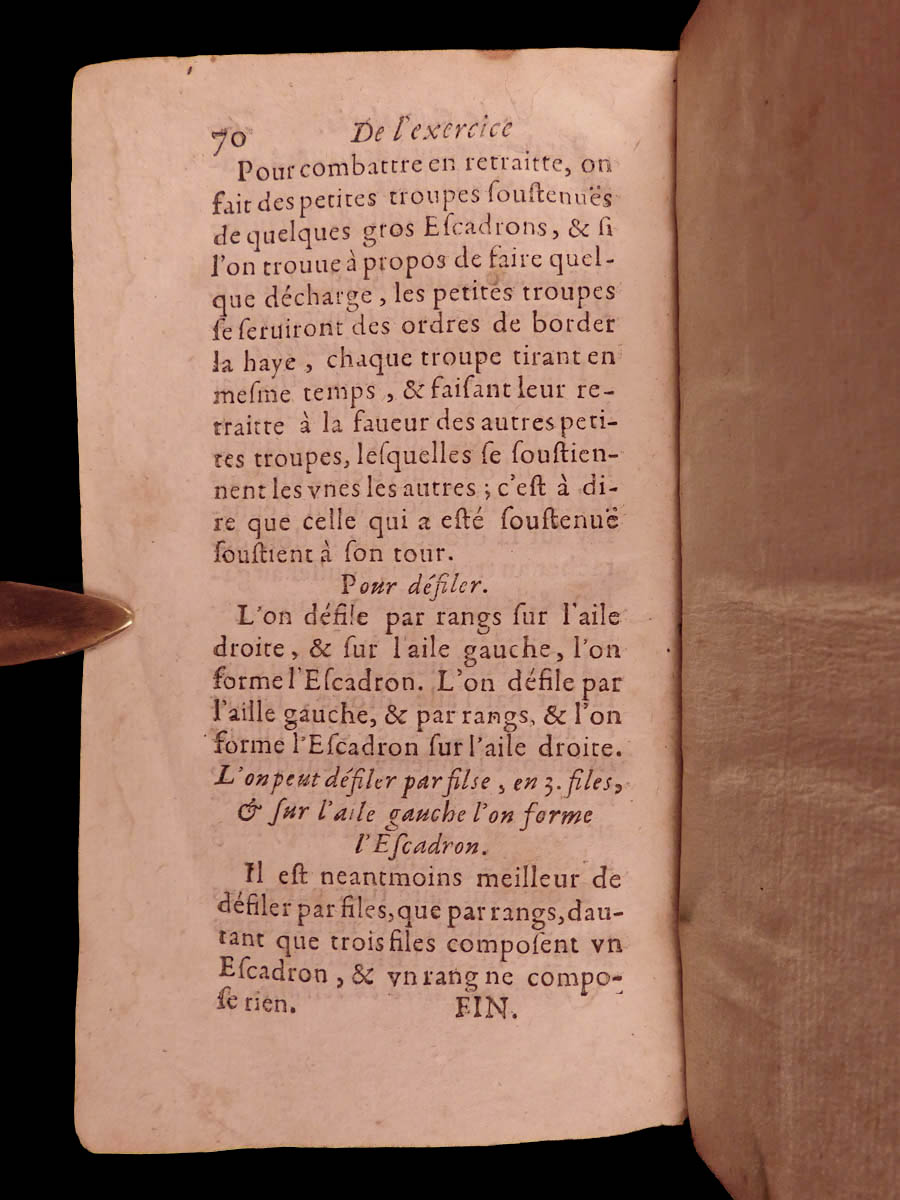 70 De l'exercice
Pour combattre en retraitte, on
fait des petites troupes ſouſtenuës
de quelques gros Eſcadrons, & ſi
l'on trouue à propos de faire quel-
que décharge, les petites troupes
ſe ſeruiront des ordres de border
la haye, chaque troupe tirant en
meſme temps, & faiſant leur re-
traitte à la faueur des autres peti-
tes troupes, leſquelles ſe ſouſtien-
nent les vnes les autres; c'eſt à di-
re que celle qui a eſté ſouſtenuë
ſouſtient à ſon tour.
Pour défiler.
L'on défile par rangs ſur l'aile
droite, & ſur l'aile gauche, l'on
forme l'Eſcadron. L'on défile par
l'aille gauche, & par rangs, & l'on
forme l'Eſcadron ſur l'aile droite.
L'on peut défiler par filse, en 3. files,
& ſur l'aile gauche l'on forme
l'Eſcadron.
Il eſt neantmoins meilleur de
défiler par files, que par rangs, dau-
tant que trois files compoſent vn
Eſcadron, & vn rang ne compo-
ſe rien. FIN.